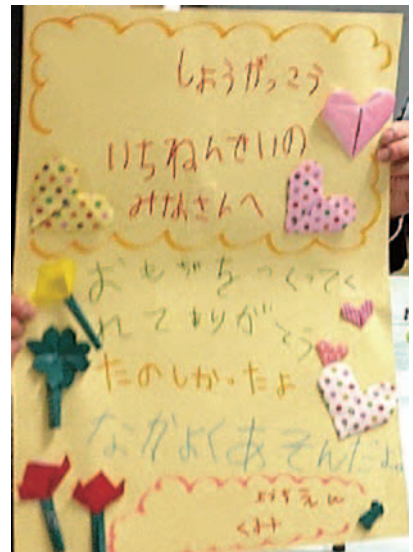 しょうがっこう
いちねんせいの
みなさんへ
おもちゃをつくってく
れてありがとう
たのしかったよ
なかよくあそんだよ。
ようちえん
くみ